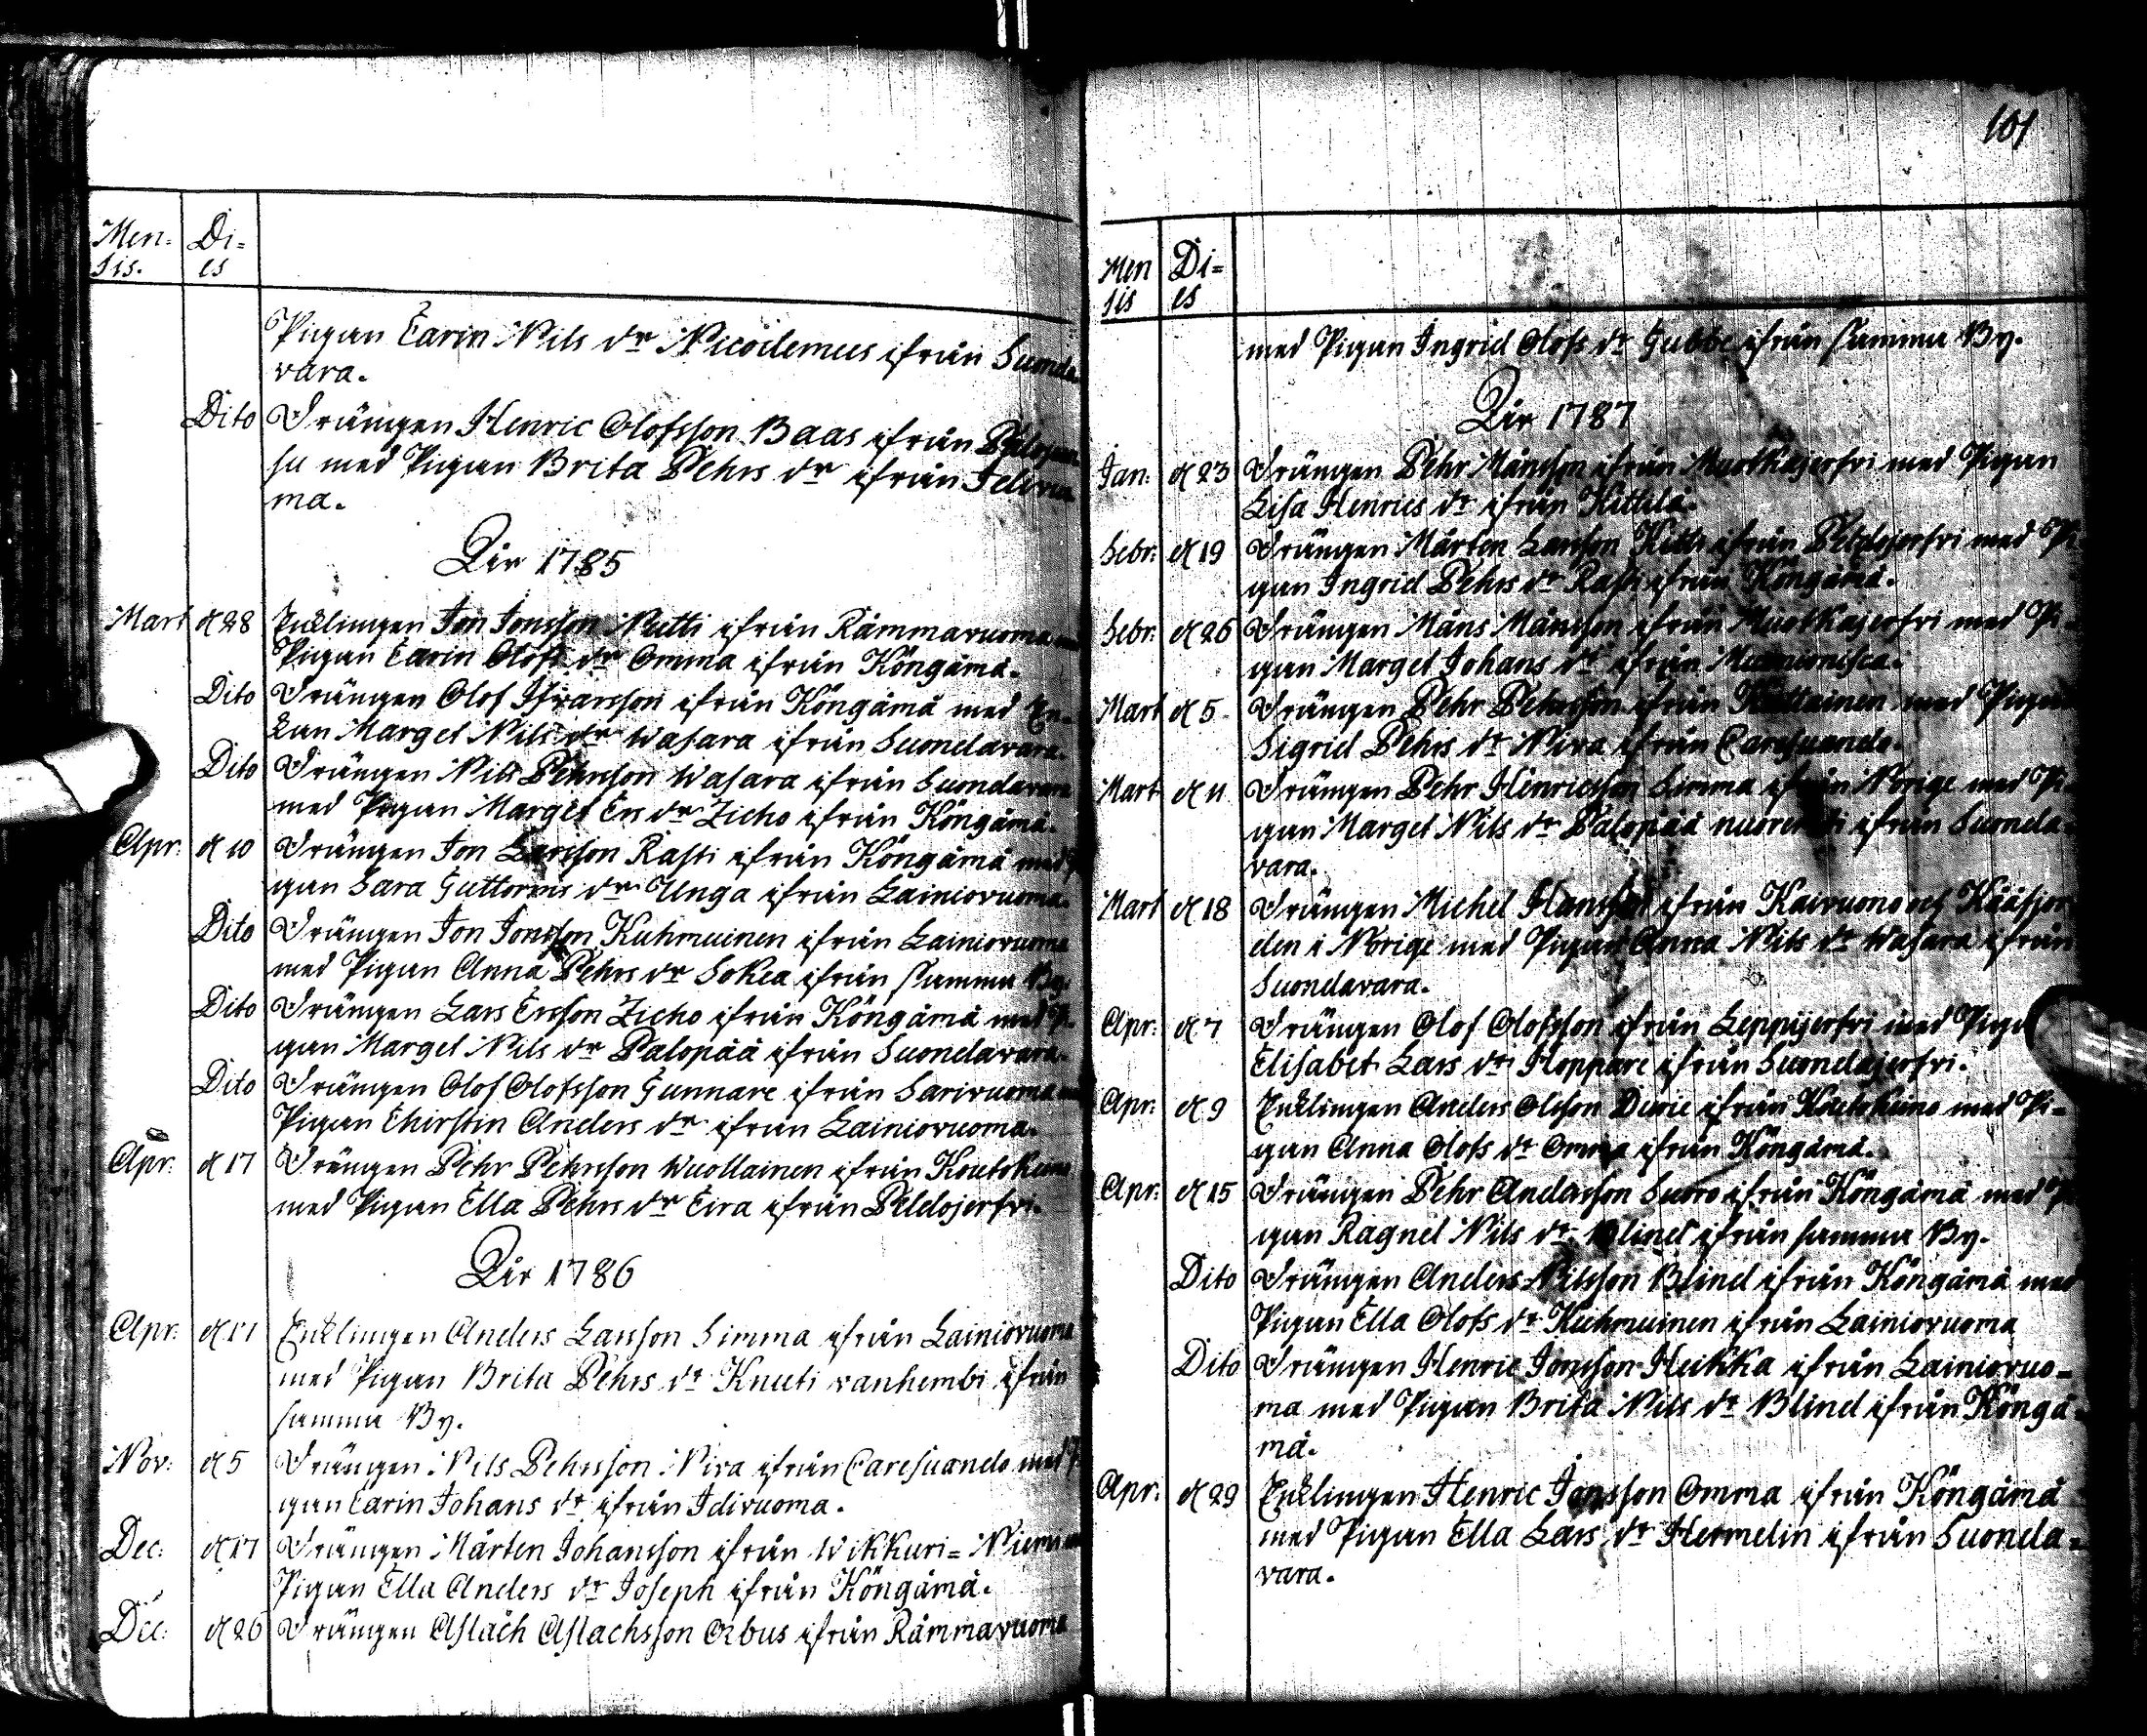 Men-
sis.
Di-
es
Pigan Carin Nils dr Nicodemus ifrån Suonda
vara.
Dito Drängen Henric Olofsson Baas ifrån
su med Pigan Brita Pehrs dr ifrån
ma.
År 1785
Mart d 28 Enklingen Jon Jonsson Nutti ifrån Rämmavuoma
Pigan Carin Olofs dr Omma ifrån Köngämä.
Dito Drängen Olof Ifvarsson ifrån Köngämä med En-
kan Marget Nils dr Wasara ifrån Suondavara.
Dito Drängen Nils Pehrsson Wasara ifrån Suondavara
med Pigan Marget Ers dr Zicho ifrån Köngämä.
Apr: d 10 Drängen Jon Larsson Rasti ifrån Köngämä med
gan Sara Guttorms dr Unga ifrån Lainiovuoma.
Dito Drängen Jon Jonsson Kuhmuinen ifrån Lainiovuoma
med Pigan Anna Pehrs dr Sokea ifrån samma By.
Dito Drängen Lars Ersson Zicho ifrån Köngämä med
gan Marget Nils dr Palopää ifrån Suondavara.
Dito Drängen Olof Olofsson Gunnare ifrån Sarivuoma
Pigan Chirstin Anders dr ifrån Lainiovuoma.
Apr: d 17 Drängen Pehr Pehrsson Wuollainen ifrån Koutokeino
med Pigan Ella Pehrs dr Eira ifrån Peldojerfvi.
År 1786
Apr: d 11 Enklingen Anders Larsson Simma ifrån Lainiovuoma
med Pigan Brita Pehrs dr Knuti vanhembi ifrån
samma By.
Nov: d 5 Drängen Nils Pehrsson Niva ifrån Caresuando med
gan Carin Johans dr ifrån Idivuoma.
Dec: d 17 Drängen Mårten Johansson ifrån Wikkuri= Niemi
Pigan Ella Anders dr Joseph ifrån Köngämä.
Dec: d 26 Drängen Aslach Aslachsson Orbus ifrån Rämmavuoma
101
Men
sis
Di=
es
med Pigan Ingrid Olofs dr Gubbe ifrån samma By.
År 1787
Jan: d 23 Drängen Pehr Månsson ifrån Muotkajerfvi med Pigan
Lisa Henrics dr ifrån Kittilä.
Febr: d 19 Drängen Mårten Larsson Kitti ifrån Peldojerfvi med Pi
gan Ingrid Pehrs dr Rasti ifrån Köngämä.
Febr: d 26 Drängen Måns Månsson ifrån Muotkajerfvi med Pi-
gan Marget Johans dr ifrån Muonionisca.
Mart d 5 Drängen Pehr Pehrsson ifrån Kuttainen med Pigan
Sigrid Pehrs dr Niva ifrån Caresuando.
Mart d 11 Drängen Pehr Hinricsson Simma ifrån Norige med Pi
gan Marget Nils dr Palopää ifrån Suonda-
vara.
Mart d 18 Drängen Michel Hansson ifrån Kaivuono och Kååfjor
den i Norige med Pigan Anna Nils dr Wasara ifrån
Suondavara.
Apr: d 7 Drängen Olof Olofsson ifrån Leppijerfvi med Piga
Elisabet Lars dr Hoppare ifrån Suondajerfvi.
Apr: d 9 Enklingen Anders Olsson ifrån Koutokeino med Pi-
gan Anna Olofs dr Omma ifrån Köngämä.
Apr: d 15 Drängen Pehr Andersson Suoro ifrån Köngämä med
gan Ragnel Nils dr Blind ifrån samma By.
Dito Drängen Anders Nilsson Blind ifrån Köngämä med
Pigan Ella Olofs dr Kuhmuinen ifrån Lainiovuoma
Dito Drängen Henric Jonsson Heikka ifrån Lainiovuo-
ma med Pigan Brita Nils dr Blind ifrån Köngä-
mä.
Apr: d 29 Enklingen Henric Jonsson Omma ifrån Köngämä
med Pigan Ella Lars dr Hermelin ifrån Suonda-
vara.